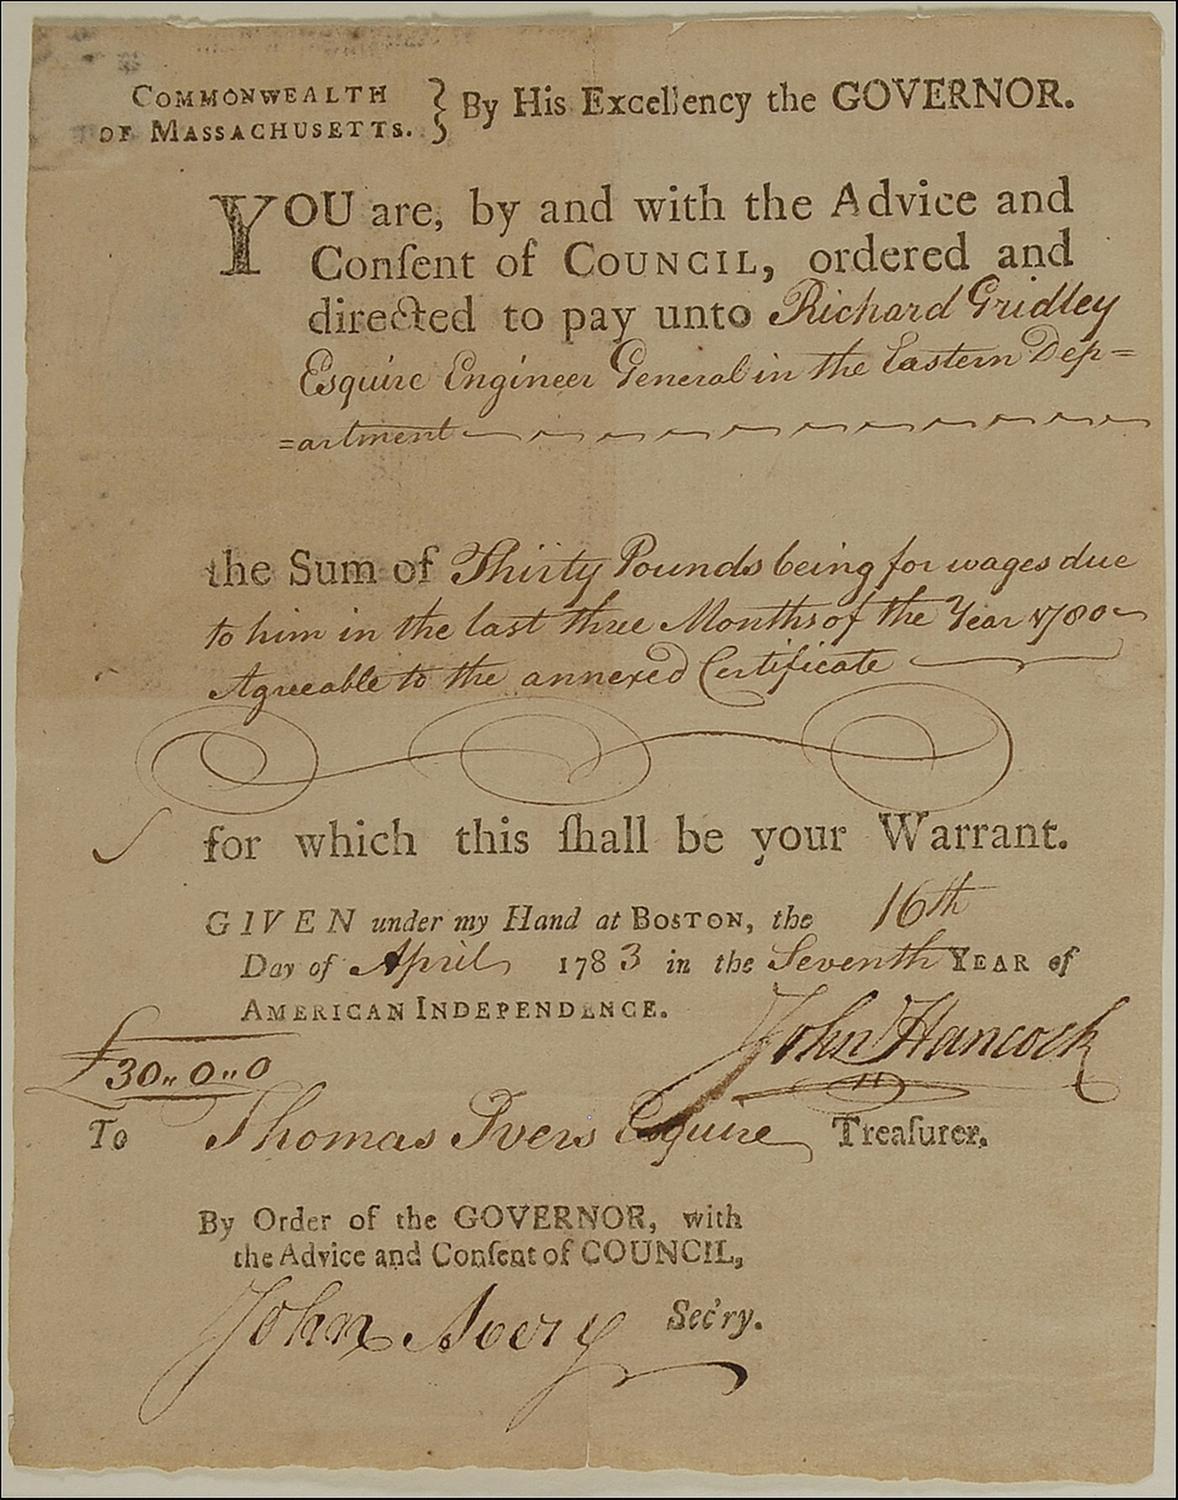 COMMONWEALTH
OF MASSACHUSETTS.
} By His Excellency the GOVERNOR.
YOU are, by and with the Advice and
Conſent of COUNCIL, ordered and
directed to pay unto Richard Gridley
Esquire Engineer General in the Eastern Dep=
=artment
the Sum of Thirty Pounds being for wages due
to him in the last three Months of the Year 1780
Agreeable to the annexed Certificate
for which this ſhall be your Warrant.
GIVEN under my Hand at BOSTON, the 16th
Day of April 1783 in the Seventh YEAR of
AMERICAN INDEPENDENCE.
John Hancock
£30.,0.,0
To Thomas Ivers Esquire Treaſurer.
By Order of the GOVERNOR, with
the Advice and Conſent of COUNCIL,
John Avery Sec'ry.